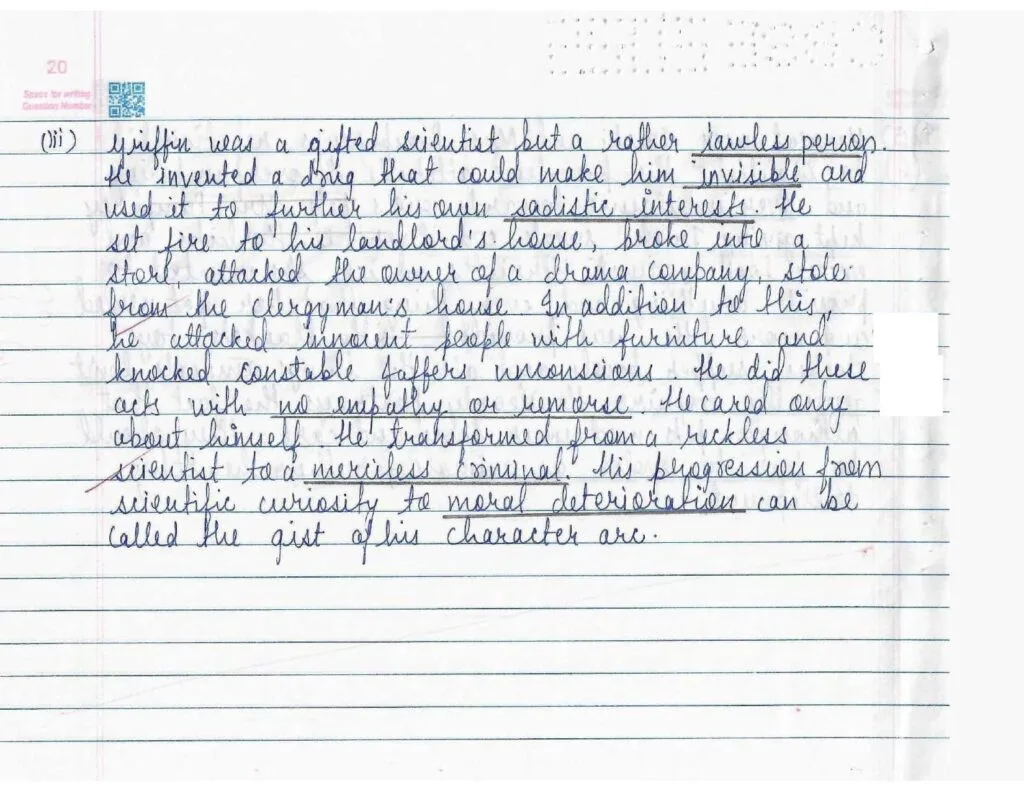 20
Space for writing
Question Number
(iii) Griffin was a gifted scientist but a rather lawless person.
He invented a drug that could make him invisible and
used it to further his own sadistic interests. He
set fire to his landlord's house, broke into a
store, attacked the owner of a drama company, stole
from the clergyman's house. In addition to this,
he attacked innocent people with furniture and
knocked constable Jaffers unconscious. He did these
acts with no empathy or remorse. He cared only
about himself. He transformed from a reckless
scientist to a merciless criminal. His progression from
scientific curiosity to moral deterioration can be
called the gist of his character arc.